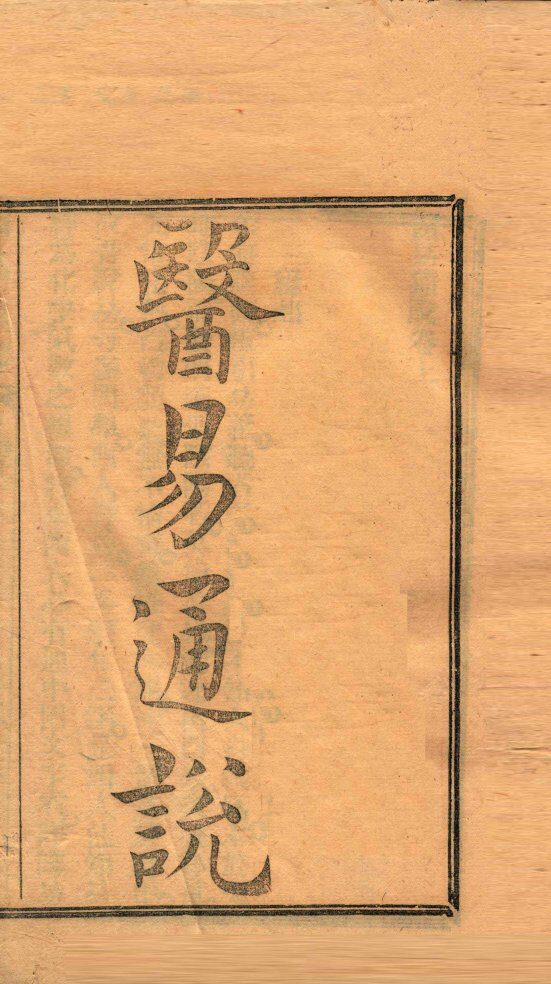 醫易通說